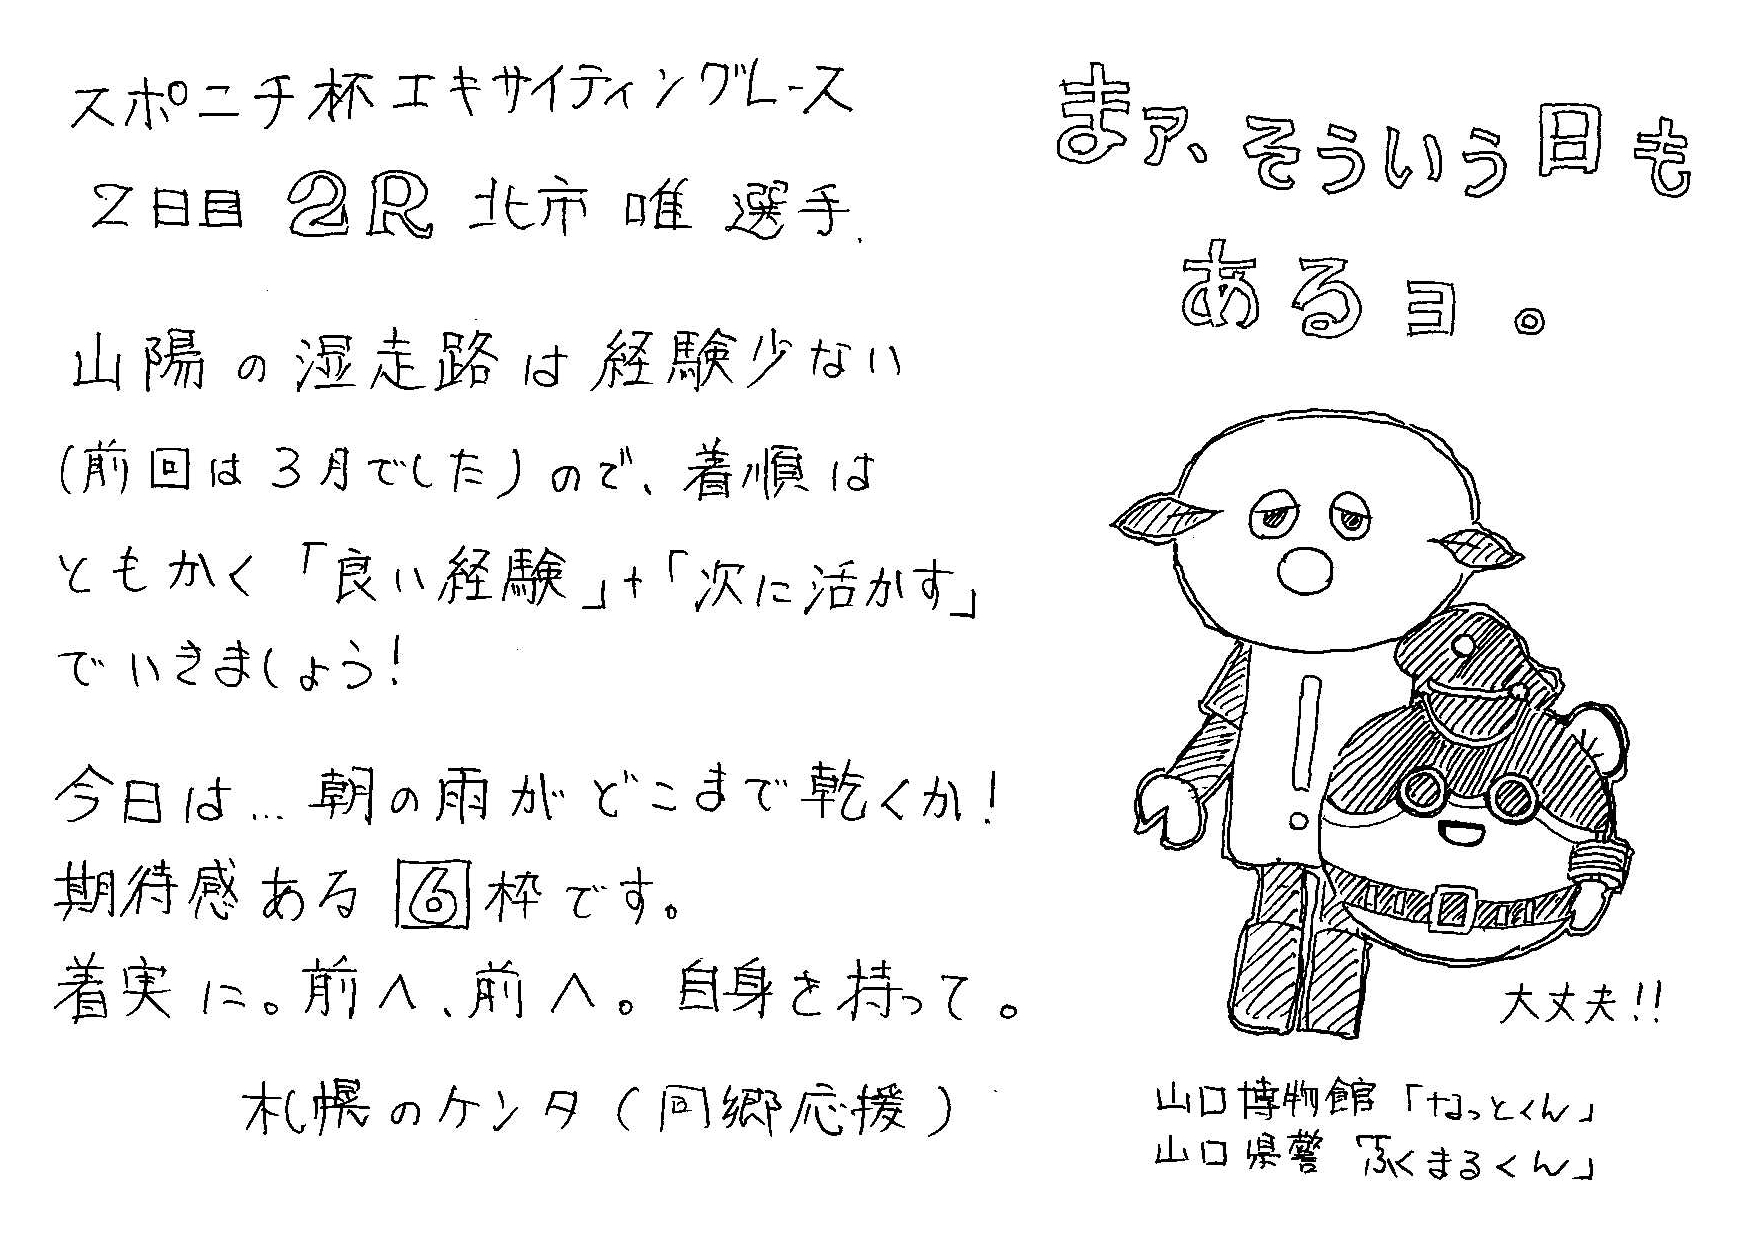 スポニチ杯エキサイティングレース
2日目 2R 北市 唯 選手.
山陽の湿走路は経験少ない
(前回は3月でした)ので、着順は
ともかく「良い経験」+「次に活かす」
でいきましょう!
今日は…朝の雨がどこまで乾くか!
期待感ある 6 枠です。
着実に。前へ、前へ。自身を持って。
札幌のケンタ(同郷応援)
まァ、そういう日も
あるヨ。
大丈夫!!
山口博物館「なっとくん」
山口県警「ふくまるくん」